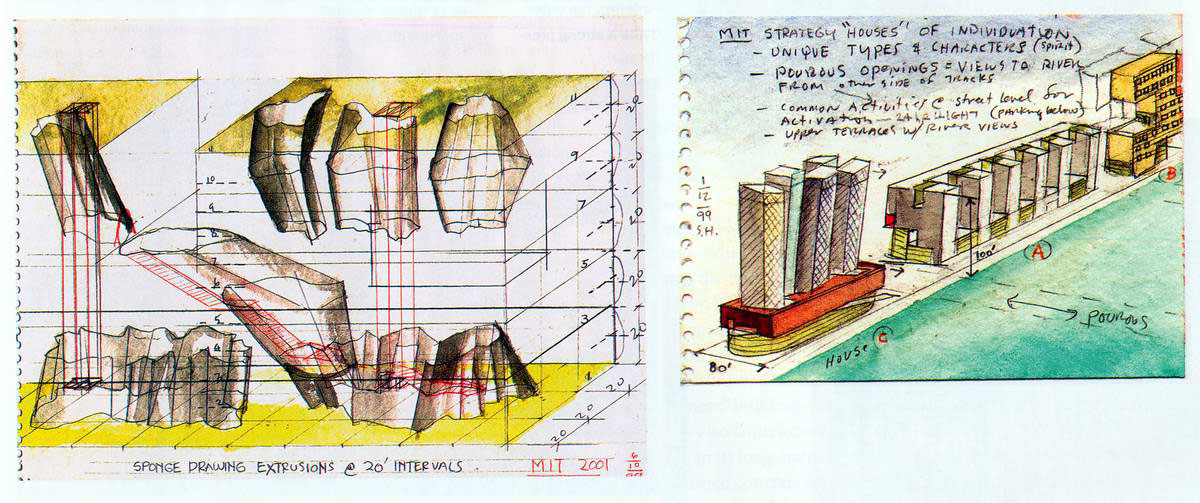 SPONGE DRAWING EXTRUSIONS @ 20' INTERVALS.
MIT 2001
6
10
99
11
10
9
8
7
6
5
4
3
2
9
7
5
3
1
20
20
20
20
20
20
20
MIT STRATEGY "HOUSES" OF INDIVIDUATION
- UNIQUE TYPES & CHARACTERS (SPIRIT)
- POUROUS OPENINGS = VIEWS TO RIVER
FROM OTHER SIDE OF TRACKS
- COMMON ACTIVITIES @ STREET LEVEL FOR
ACTIVATION - DAY & NIGHT (PARKING BELOW)
- UPPER TERRACES W/ RIVER VIEWS
1
12
99
S.H.
B
100'
A
POUROUS
HOUSE C
80'